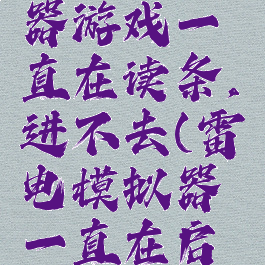 器游戏一
直在读条,
进不去(雷
电模拟器
一直在启